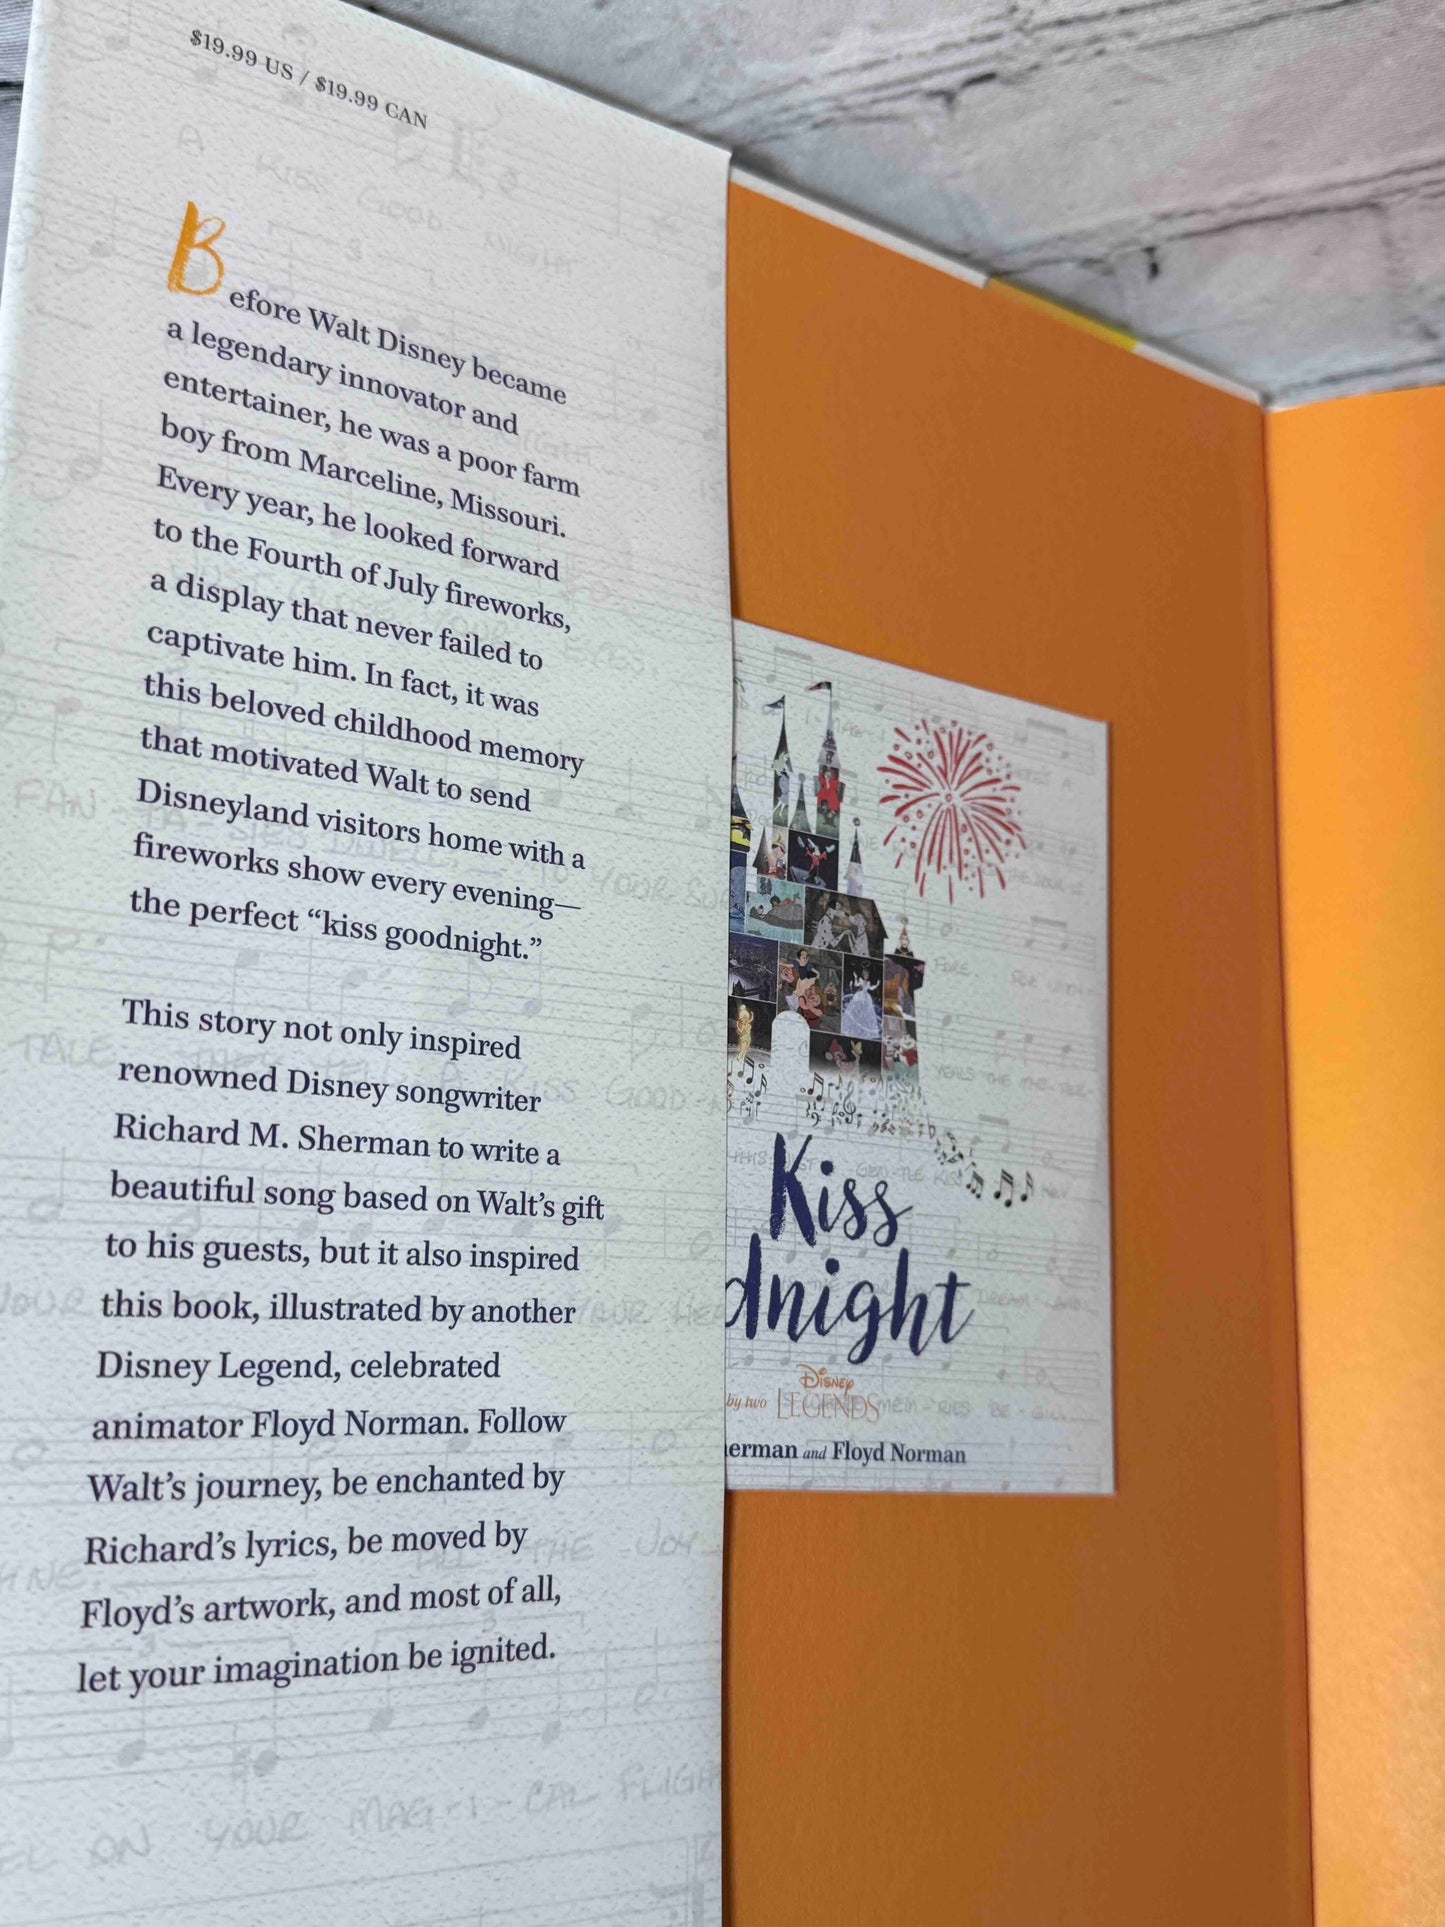 $19.99 US / $19.99 CAN
Before Walt Disney became
a legendary innovator and
entertainer, he was a poor farm
boy from Marceline, Missouri.
Every year, he looked forward
to the Fourth of July fireworks,
a display that never failed to
captivate him. In fact, it was
this beloved childhood memory
that motivated Walt to send
Disneyland visitors home with a
fireworks show every evening—
the perfect “kiss goodnight.”
This story not only inspired
renowned Disney songwriter
Richard M. Sherman to write a
beautiful song based on Walt’s gift
to his guests, but it also inspired
this book, illustrated by another
Disney Legend, celebrated
animator Floyd Norman. Follow
Walt’s journey, be enchanted by
Richard’s lyrics, be moved by
Floyd’s artwork, and most of all,
let your imagination be ignited.
A KISS GOOD NIGHT
FAN-TA-SIES DWELL
TALE
KISS GOOD-N
YOUR
ALL THE JOY
ON YOUR MAG-I-CAL FLIGH
Kiss
dnight
by two Disney LEGENDS
erman and Floyd Norman